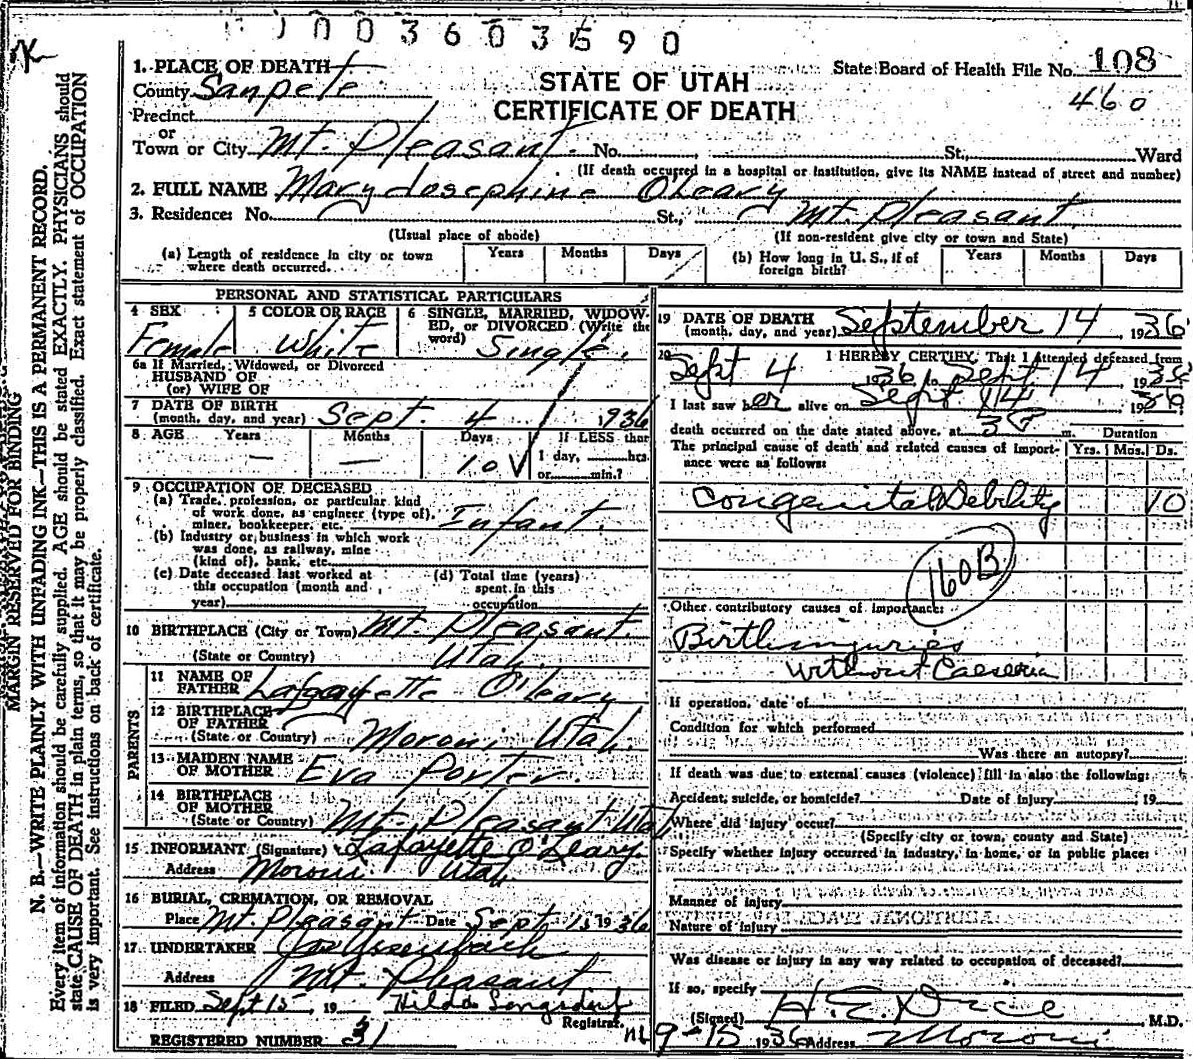 1003603590
1. PLACE OF DEATH
STATE OF UTAH
CERTIFICATE OF DEATH
State Board of Health File No. 108
460
County Sanpete
Precinct
or
Town or City Mt. Pleasant. No. St., Ward
(If death occurred in a hospital or institution, give its NAME instead of street and number)
2. FULL NAME Mary Josephine O'Leary
3. Residence: No. St., Mt. Pleasant
(Usual place of abode) (If non-resident give city or town and State)
(a) Length of residence in city or town where death occurred. Years Months Days
(b) How long in U. S., if of foreign birth? Years Months Days
PERSONAL AND STATISTICAL PARTICULARS
4 SEX 5 COLOR OR RACE 6 SINGLE, MARRIED, WIDOWED, or DIVORCED (Write the word)
Female White Single.
6a If Married, Widowed, or Divorced
HUSBAND OF
(or) WIFE OF
7 DATE OF BIRTH
(month, day, and year) Sept. 4 1936
8 AGE Years Months Days If LESS than
— — 10 1 day, hrs.
or min.?
9 OCCUPATION OF DECEASED
(a) Trade, profession, or particular kind
of work done, as engineer (type of),
miner, bookkeeper, etc. Infant.
(b) Industry or business in which work
was done, as railway, mine
(kind of), bank, etc.
(c) Date deceased last worked at
this occupation (month and
year)
(d) Total time (years)
spent in this
occupation
10 BIRTHPLACE (City or Town) Mt. Pleasant.
(State or Country) Utah.
PARENTS
11 NAME OF
FATHER Lafayette O'Leary
12 BIRTHPLACE
OF FATHER
(State or Country) Moroni, Utah.
13 MAIDEN NAME
OF MOTHER Eva Porter.
14 BIRTHPLACE
OF MOTHER
(State or Country) Mt. Pleasant Utah
15 INFORMANT (Signature) Lafayette O'Leary.
Address Moroni Utah
16 BURIAL, CREMATION, OR REMOVAL
Place Mt. Pleasant Date Sept 15 1936
17 UNDERTAKER
Address Mt. Pleasant
18 FILED Sept 15, 19 Hilda
Registrar.
REGISTERED NUMBER 31
19 DATE OF DEATH
(month, day, and year) September 14 1936
20 I HEREBY CERTIFY, That I Attended deceased from
Sept 4 1936 to Sept 14 1936
I last saw her alive on Sept 14 1936
death occurred on the date stated above, at m. Duration
The principal cause of death and related causes of importance were as follows: Yrs. Mos. Ds.
Congenital Debility 10
160B
Other contributory causes of importance:
Birth injuries
Without
If operation, date of
Condition for which performed
Was there an autopsy?
If death was due to external causes (violence) fill in also the following:
Accident, suicide, or homicide? Date of injury 19
Where did injury occur?
(Specify city or town, county and State)
Specify whether injury occurred in industry, in home, or in public place:
Manner of injury
Nature of injury
Was disease or injury in any way related to occupation of deceased?
If so, specify
(Signed) M.D.
9-15 1936 Address Moroni
MARGIN RESERVED FOR BINDING
N. B.—WRITE PLAINLY WITH UNFADING INK—THIS IS A PERMANENT RECORD.
Every item of information should be carefully supplied. AGE should be stated EXACTLY. PHYSICIANS should
state CAUSE OF DEATH in plain terms, so that it may be properly classified. Exact statement of OCCUPATION
is very important. See instructions on back of certificate.